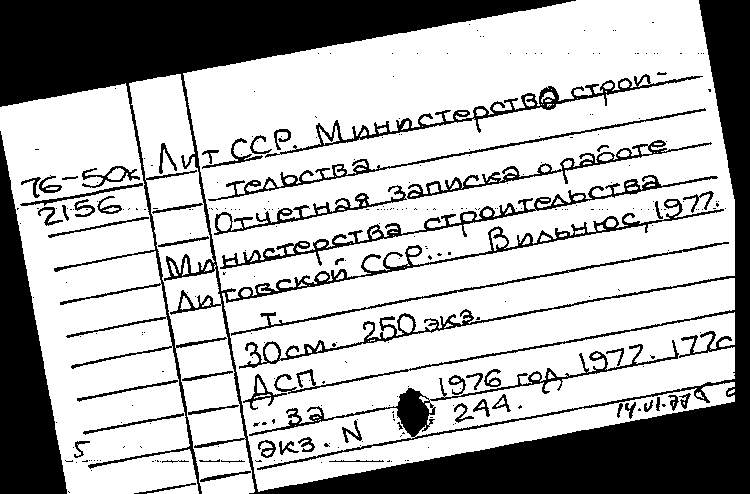 76-50к Лит ССР. Министерство строи-
2156 тельства.
Отчетная записка о работе
Министерства строительства
Литовской ССР... Вильнюс, 1977.
т.
30 см. 250 экз.
ДСП.
... за 1976 год. 1977. 177с
5 экз. N 244.
14.VI.77